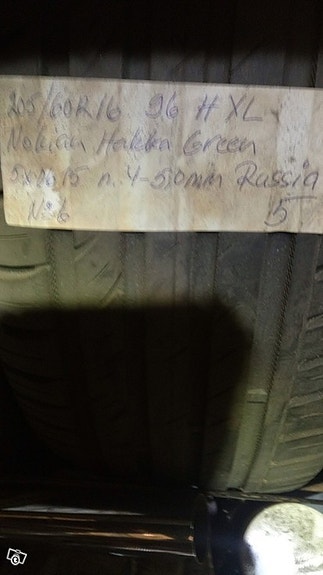 205/60R16 96 H XL
Nokian Hakka Green
n. 4-5,0mm Russia
N:6 5